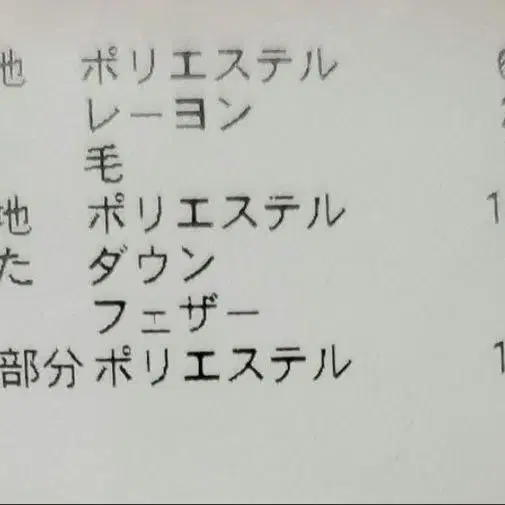 地 ポリエステル
レーヨン
毛
地 ポリエステル 1
た ダウン
フェザー
部分 ポリエステル 1